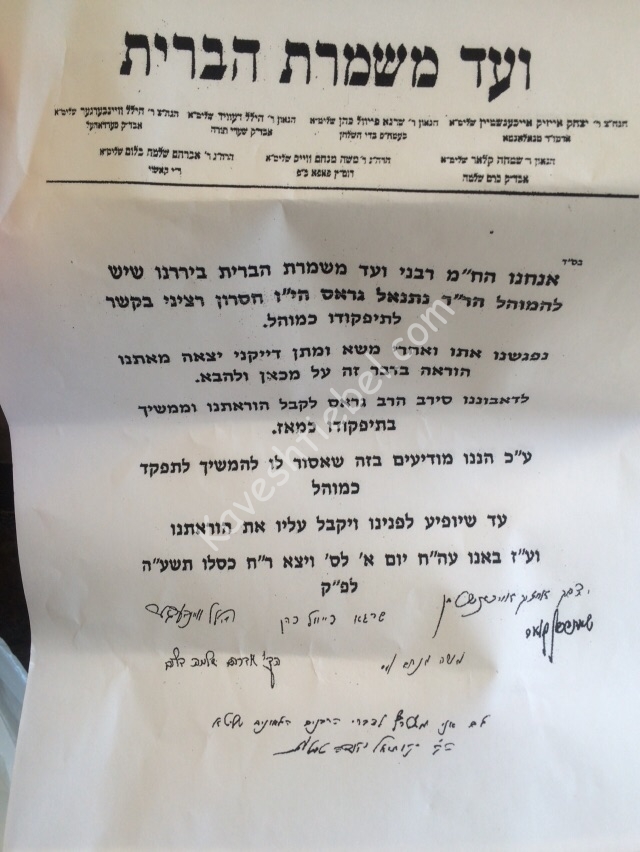 ועד משמרת הברית
הגה"צ ר' יצחק אייזיק אייכענשטיין שליט"א הגאון ר' שרגא פייוול כהן שליט"א הגאון ר' הילל דעוויד שליט"א הגה"צ ר' הילל וויינבערגער שליט"א
בעמח"ס בדי השלחן אבד"ק שערי תורה אבד"ק סערדאהעל
הגאון ר' שמחה קלאר שליט"א הרה"ג ר' משה מנחם ווייס שליט"א הרה"ג ר' אברהם שלמה בלום שליט"א
אבד"ק כרם שלמה דומ"ץ פאפא ב"פ ר"י קאשוי
בס"ד
אנחנו הח"מ רבני ועד משמרת הברית ביררנו שיש
להמוהל הר"ר נתנאל גראס הי"ו חסרון רציני בקשר
לתיפקודו כמוהל.
נפגשנו אתו ואחרי משא ומתן דייקני יצאה מאתנו
הוראה בדבר זה על מכאן ולהבא.
לדאבוננו סירב הרב גראס לקבל הוראתנו וממשיך
בתיפקודו כמאז.
ע"כ הננו מודיעים בזה שאסור לו להמשיך לתפקד
כמוהל
עד שיופיע לפנינו ויקבל עליו את הוראתנו
וע"ז באנו עה"ח יום א' לס' ויצא ר"ח כסלו תשע"ה
לפ"ק
יצחק אייזיק אייכענשטיין
שרגא פייוול כהן
הלל
משה מנחם
אברהם שלמה בלום
גם אני מצטרף לדברי הרבנים הגאונים שליטא
יהודה
KaveshTiebel.com